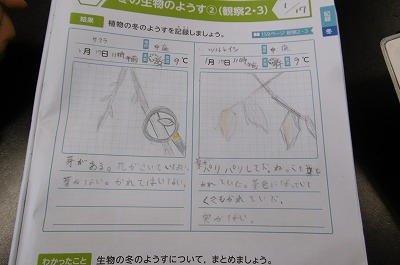 冬の生物のようす②(観察2・3)
1/17
記録 冬
結果 植物の冬のようすを記録しましょう。
159ページ 観察2・3
サクラ
1月17日11時 午前 9℃
ツルレイシ
1月17日11時 午前 9℃
芽がある。花がさいていない。
葉がない。かれてはいない。
パリパリしてた。
かれていた。茶色になっていて
くきもかれていた。
実がない。
わかったこと 生物の冬のようすについて、まとめましょう。